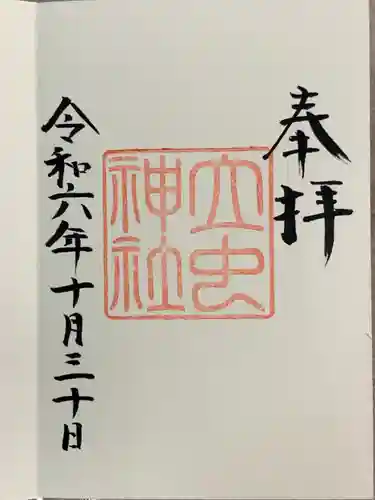 奉拝
大虫
神社
令和六年十月三十日